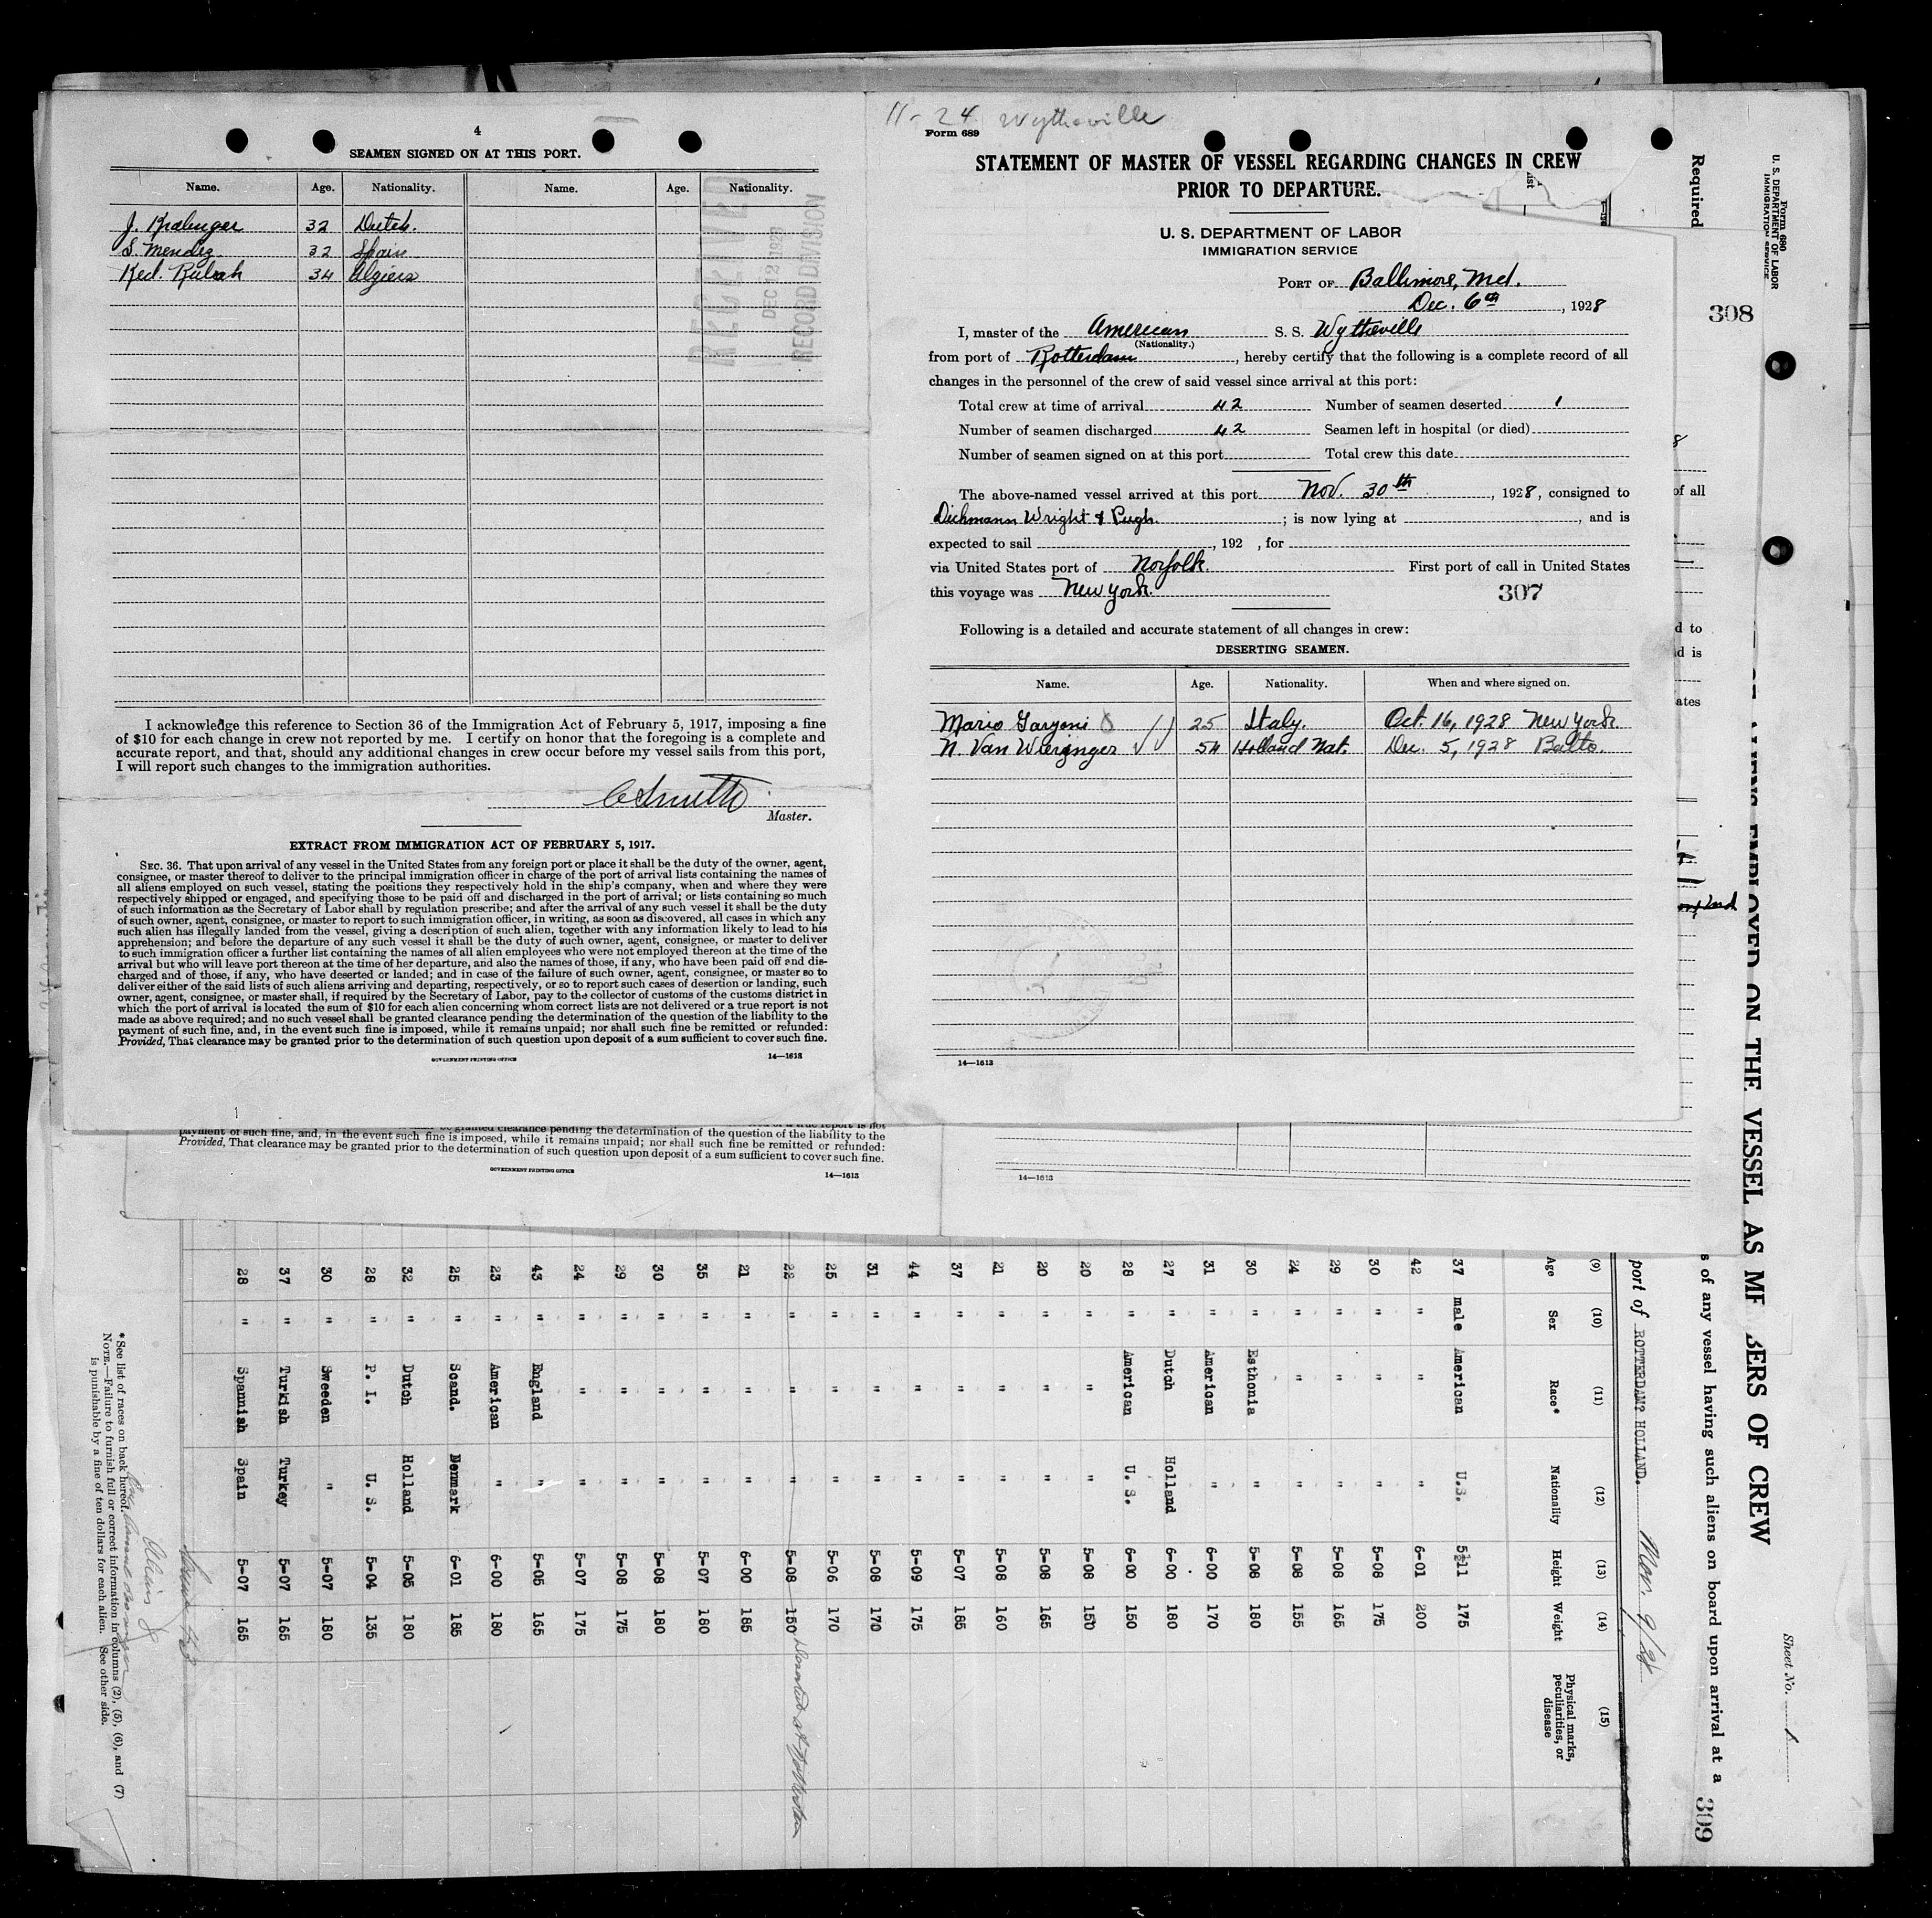 4
SEAMEN SIGNED ON AT THIS PORT.
Name. Age. Nationality. Name. Age. Nationality.
J. Kralinger 32 Dutch.
S. Mendez 32 Spain
Ked. Rubah 34 Algiers
RECEIVED
DEC 12 1928
RECORD DIVISION
I acknowledge this reference to Section 36 of the Immigration Act of February 5, 1917, imposing a fine
of $10 for each change in crew not reported by me. I certify on honor that the foregoing is a complete and
accurate report, and that, should any additional changes in crew occur before my vessel sails from this port,
I will report such changes to the immigration authorities.
Master.
EXTRACT FROM IMMIGRATION ACT OF FEBRUARY 5, 1917.
SEC. 36. That upon arrival of any vessel in the United States from any foreign port or place it shall be the duty of the owner, agent,
consignee, or master thereof to deliver to the principal immigration officer in charge of the port of arrival lists containing the names of
all aliens employed on such vessel, stating the positions they respectively hold in the ship's company, when and where they were
respectively shipped or engaged, and specifying those to be paid off and discharged in the port of arrival; or lists containing so much
of such information as the Secretary of Labor shall by regulation prescribe; and after the arrival of any such vessel it shall be the duty
of such owner, agent, consignee, or master to report to such immigration officer, in writing, as soon as discovered, all cases in which any
such alien has illegally landed from the vessel, giving a description of such alien, together with any information likely to lead to his
apprehension; and before the departure of any such vessel it shall be the duty of such owner, agent, consignee, or master to deliver
to such immigration officer a further list containing the names of all alien employees who were not employed thereon at the time of the
arrival but who will leave port thereon at the time of her departure, and also the names of those, if any, who have been paid off and dis-
charged and of those, if any, who have deserted or landed; and in case of the failure of such owner, agent, consignee, or master so to
deliver either of the said lists of such aliens arriving and departing, respectively, or so to report such cases of desertion or landing, such
owner, agent, consignee, or master shall, if required by the Secretary of Labor, pay to the collector of customs of the customs district in
which the port of arrival is located the sum of $10 for each alien concerning whom correct lists are not delivered or a true report is not
made as above required; and no such vessel shall be granted clearance pending the determination of the question of the liability to the
payment of such fine, and, in the event such fine is imposed, while it remains unpaid; nor shall such fine be remitted or refunded:
Provided, That clearance may be granted prior to the determination of such question upon deposit of a sum sufficient to cover such fine.
GOVERNMENT PRINTING OFFICE 14—1613
11-24 Wytheville
Form 689
STATEMENT OF MASTER OF VESSEL REGARDING CHANGES IN CREW
PRIOR TO DEPARTURE.
U. S. DEPARTMENT OF LABOR
IMMIGRATION SERVICE
PORT OF Baltimore, Md.
Dec. 6th, 1928
I, master of the American S. S. Wytheville
(Nationality.)
from port of Rotterdam, hereby certify that the following is a complete record of all
changes in the personnel of the crew of said vessel since arrival at this port:
Total crew at time of arrival 42 Number of seamen deserted 1
Number of seamen discharged 42 Seamen left in hospital (or died)
Number of seamen signed on at this port Total crew this date
The above-named vessel arrived at this port Nov. 30th, 1928, consigned to
Dichmann Wright & Pugh.; is now lying at , and is
expected to sail , 192 , for
via United States port of Norfolk. First port of call in United States
this voyage was New York.
307
Following is a detailed and accurate statement of all changes in crew:
DESERTING SEAMEN.
Name. Age. Nationality. When and where signed on.
Mario Garzoni 25 Italy. Oct. 16, 1928 New York.
N. Van Wieringer 54 Holland Nat. Dec. 5, 1928 Balto.
14—1613
payment of such fine, and, in the event such fine is imposed, while it remains unpaid; nor shall such fine be remitted or refunded:
Provided, That clearance may be granted prior to the determination of such question upon deposit of a sum sufficient to cover such fine.
GOVERNMENT PRINTING OFFICE 14—1613
14—1613
308
of all
d to
d is
ates
Required
Form 680
U. S. DEPARTMENT OF LABOR
IMMIGRATION SERVICE
Sheet No. 1
EMPLOYED ON THE VESSEL AS MEMBERS OF CREW
s of any vessel having such aliens on board upon arrival at a
309
port of ROTTERDAM? HOLLAND. Nov. 9/28
(9) (10) (11) (12) (13) (14) (15)
Age Sex Race* Nationality Height Weight Physical marks, peculiarities, or disease
37 male American U.S. 5½11 175
42 " " " 6-01 200
30 " " " 5-08 175
29 " " " 5-08 165
24 " " " 5-08 155
30 " Esthonia " 5-08 180
31 " American " 6-00 170
27 " Dutch Holland 6-00 180
28 " American U. S. 6-00 150
20 " " " 5-08 150
20 " " " 5-08 165
21 " " " 5-08 160
37 " " " 5-07 185
44 " " " 5-09 175
31 " " " 5-08 170
25 " " " 5-06 170
22 " " " 5-08 150 Deserted at Rotterdam
21 " " " 6-00 185
35 " " " 5-07 180
30 " " " 5-08 180
29 " " " 5-08 175
24 " " " 5-07 175
43 " England " 5-05 165
23 " American " 6-00 180
25 " Scand. Denmark 6-01 185
32 " Dutch Holland 5-05 180
28 " P. I. U. S. 5-04 135
30 " Sweden " 5-07 180
37 " Turkish Turkey 5-07 165
28 " Spanish Spain 5-07 165
* See list of races on back hereof.
NOTE.—Failure to furnish full or correct information in columns (2), (5), (6), and (7)
is punishable by a fine of ten dollars for each alien. See other side.